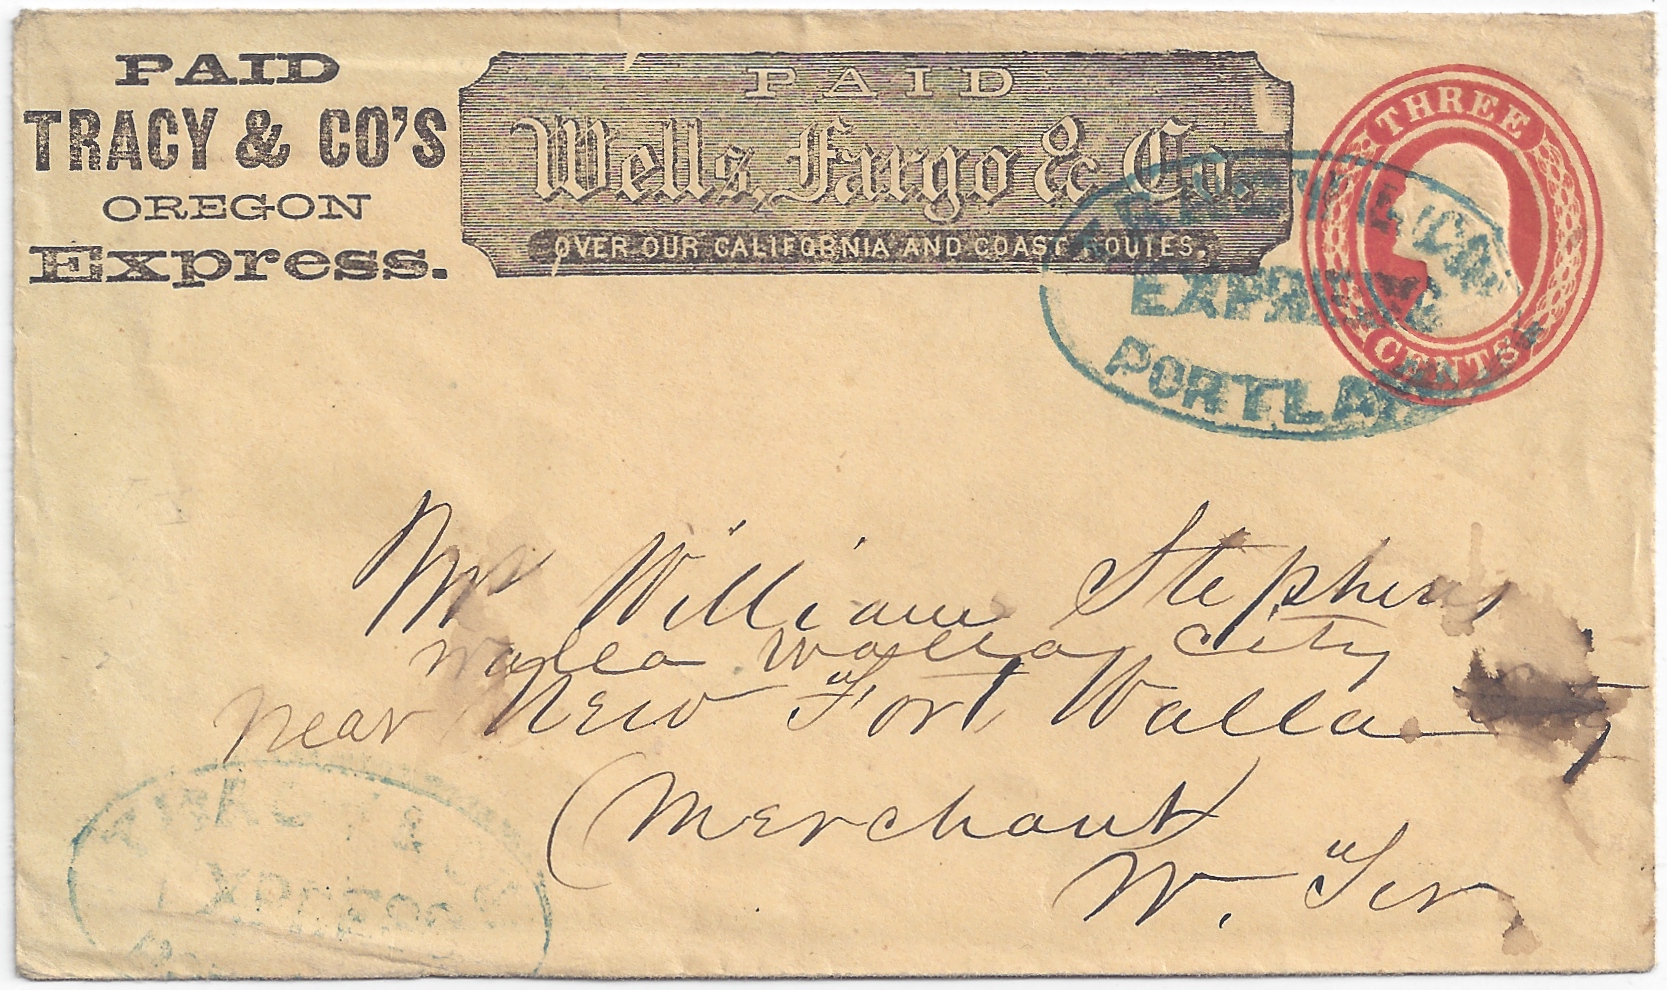 PAID
TRACY & CO'S
OREGON
Express.
PAID
Wells, Fargo & Co.
OVER OUR CALIFORNIA AND COAST ROUTES.
THREE
CENTS
EXPRESS
PORTLAND
Mr William Stephens
Walla Walla City
near New Fort Walla
(Merchant
W. Ter